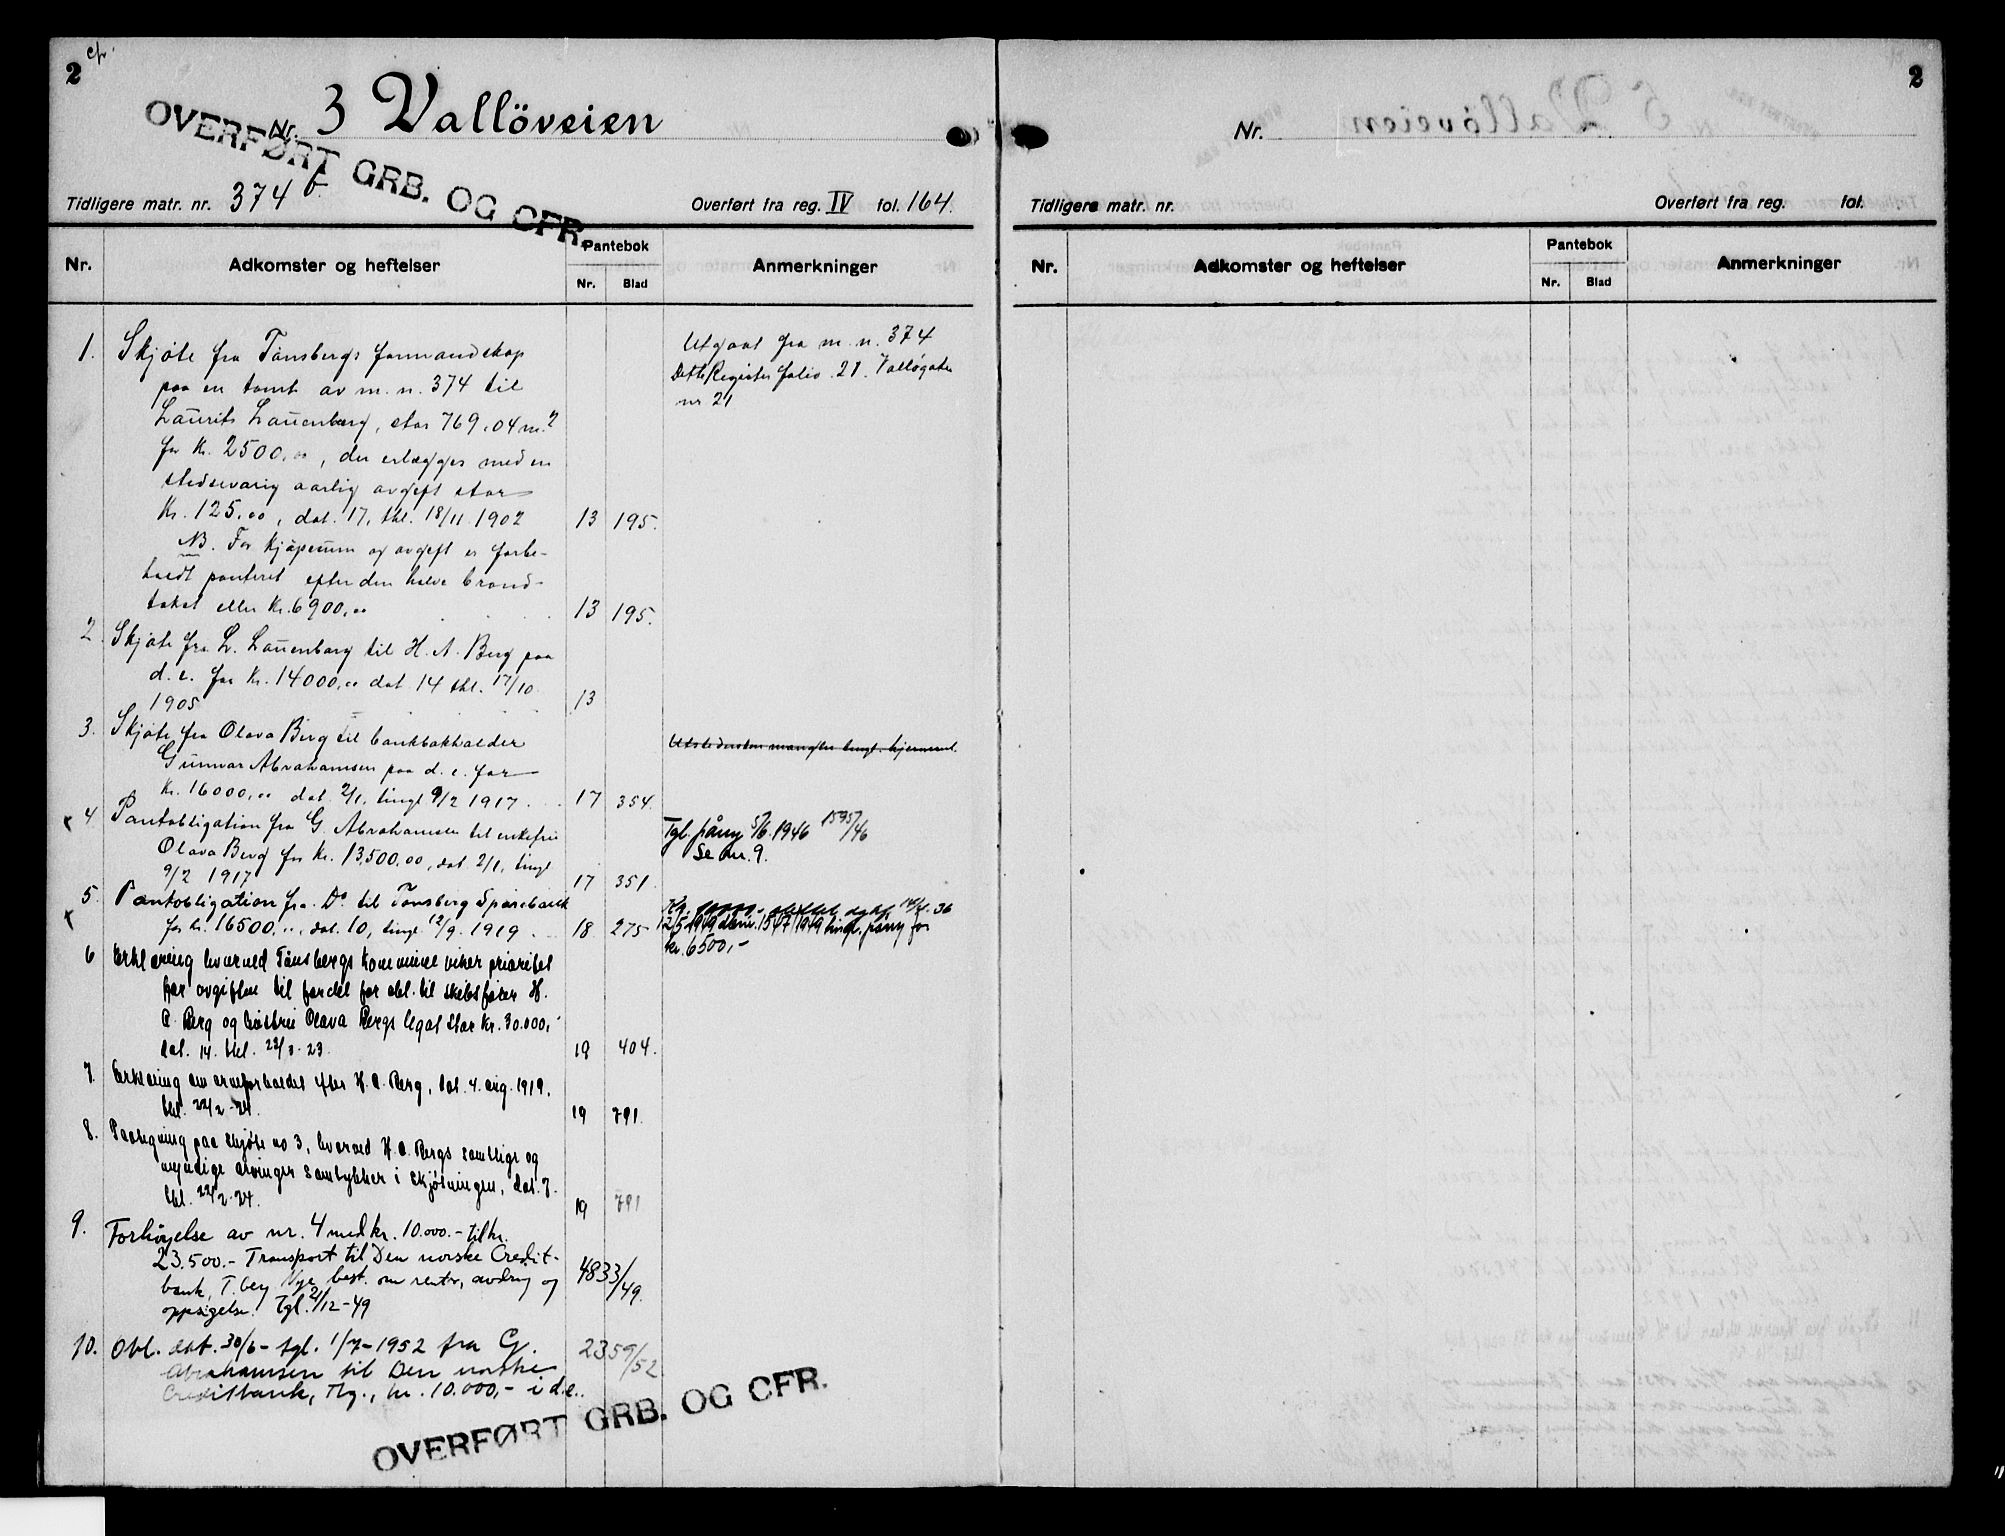 2 cfr.
Nr. 3 Vallöveien
OVERFØRT GRB. OG CFR.
Tidligere matr. nr. 374 b.
Overført fra reg. IV fol. 164.
Nr.
Adkomster og heftelser
Pantebok
Nr.
Blad
Anmerkninger
1. Skjøte fra Tönsbergs formandskap
paa en tomt av m. n. 374 til
Laurits Lauenborg, stor 769,04 m.2
for Kr. 2500,00, der erlægges med en
stedsevarig aarlig avgift stor
Kr. 125,00, dat. 17, thl. 18/11 1902 13 195.
NB. For kjöpesum og avgift er forbe-
holdt panteret efter den halve brand-
takst eller Kr. 6900,00 13 195.
Utgaat fra m. n. 374
Dette Register folio 21. Vallögaten
nr 21
2. Skjøte fra L. Lauenborg til H. A. Berg paa
d. e. for Kr. 14000,00 dat 14 thl. 17/10
1905 13
3. Skjøte fra Olava Berg til bankbokholder
Gunnar Abrahamsen paa d. e. for
Kr. 16000,00 dat. 2/1, tingl 9/2 1917 17 354.
Utstedersken mangler tingl. hjemmel.
4 Pantobligation fra G. Abrahamsen til enkefru
Olava Berg for Kr. 13,500,00, dat. 2/1, tingl
9/2 1917 17 351.
Tgl. påny 5/6 1946 1595/46
Se nr. 9.
5. Pantobligation fra Do til Tönsberg Sparebank
for Kr. 16500,00, dat. 10, tingl 12/9. 1919 18 275
12/5 1949 dknr. 1507/1949 tingl. påny for
kr. 6500,-
6 Erklæring hvorved Tönsbergs kommune viker prioritet
for avgiften til fordel for obl. til skibsfører H.
A. Berg og hustru Olava Bergs legat stor Kr. 30.000,-
dat. 14. thl. 22/ 23. 19 404.
7. Erklæring om arveforholdet efter H. A. Berg, dat. 4. aug. 1919.
thl. 22/2-24. 19 791.
8. Paategning paa skjöte no 3, hvorved H. A. Bergs samtlige og
myndige arvinger samtykker i skjötningen, dat. 7.
thl. 22/2-24. 19 791
9. Forhöyelse av nr. 4 med kr. 10.000.- til kr.
23.500.- Transport til Den norske Credit-
bank, T.berg Nye best. om renter, avdrag og
oppsigelse. Tgl. 21/12-49 4833/49.
10. Obl. dat. 30/6- tgl. 1/7-1952 fra G.
Abrahamsen til Den norske
Creditbank, Tbg., kr. 10.000,- i d.e. 2359/52
OVERFØRT GRB. OG CFR.
2
Nr.
Tidligere matr. nr.
Overført fra reg. fol.
Nr.
Adkomster og heftelser
Pantebok
Nr.
Blad
Anmerkninger